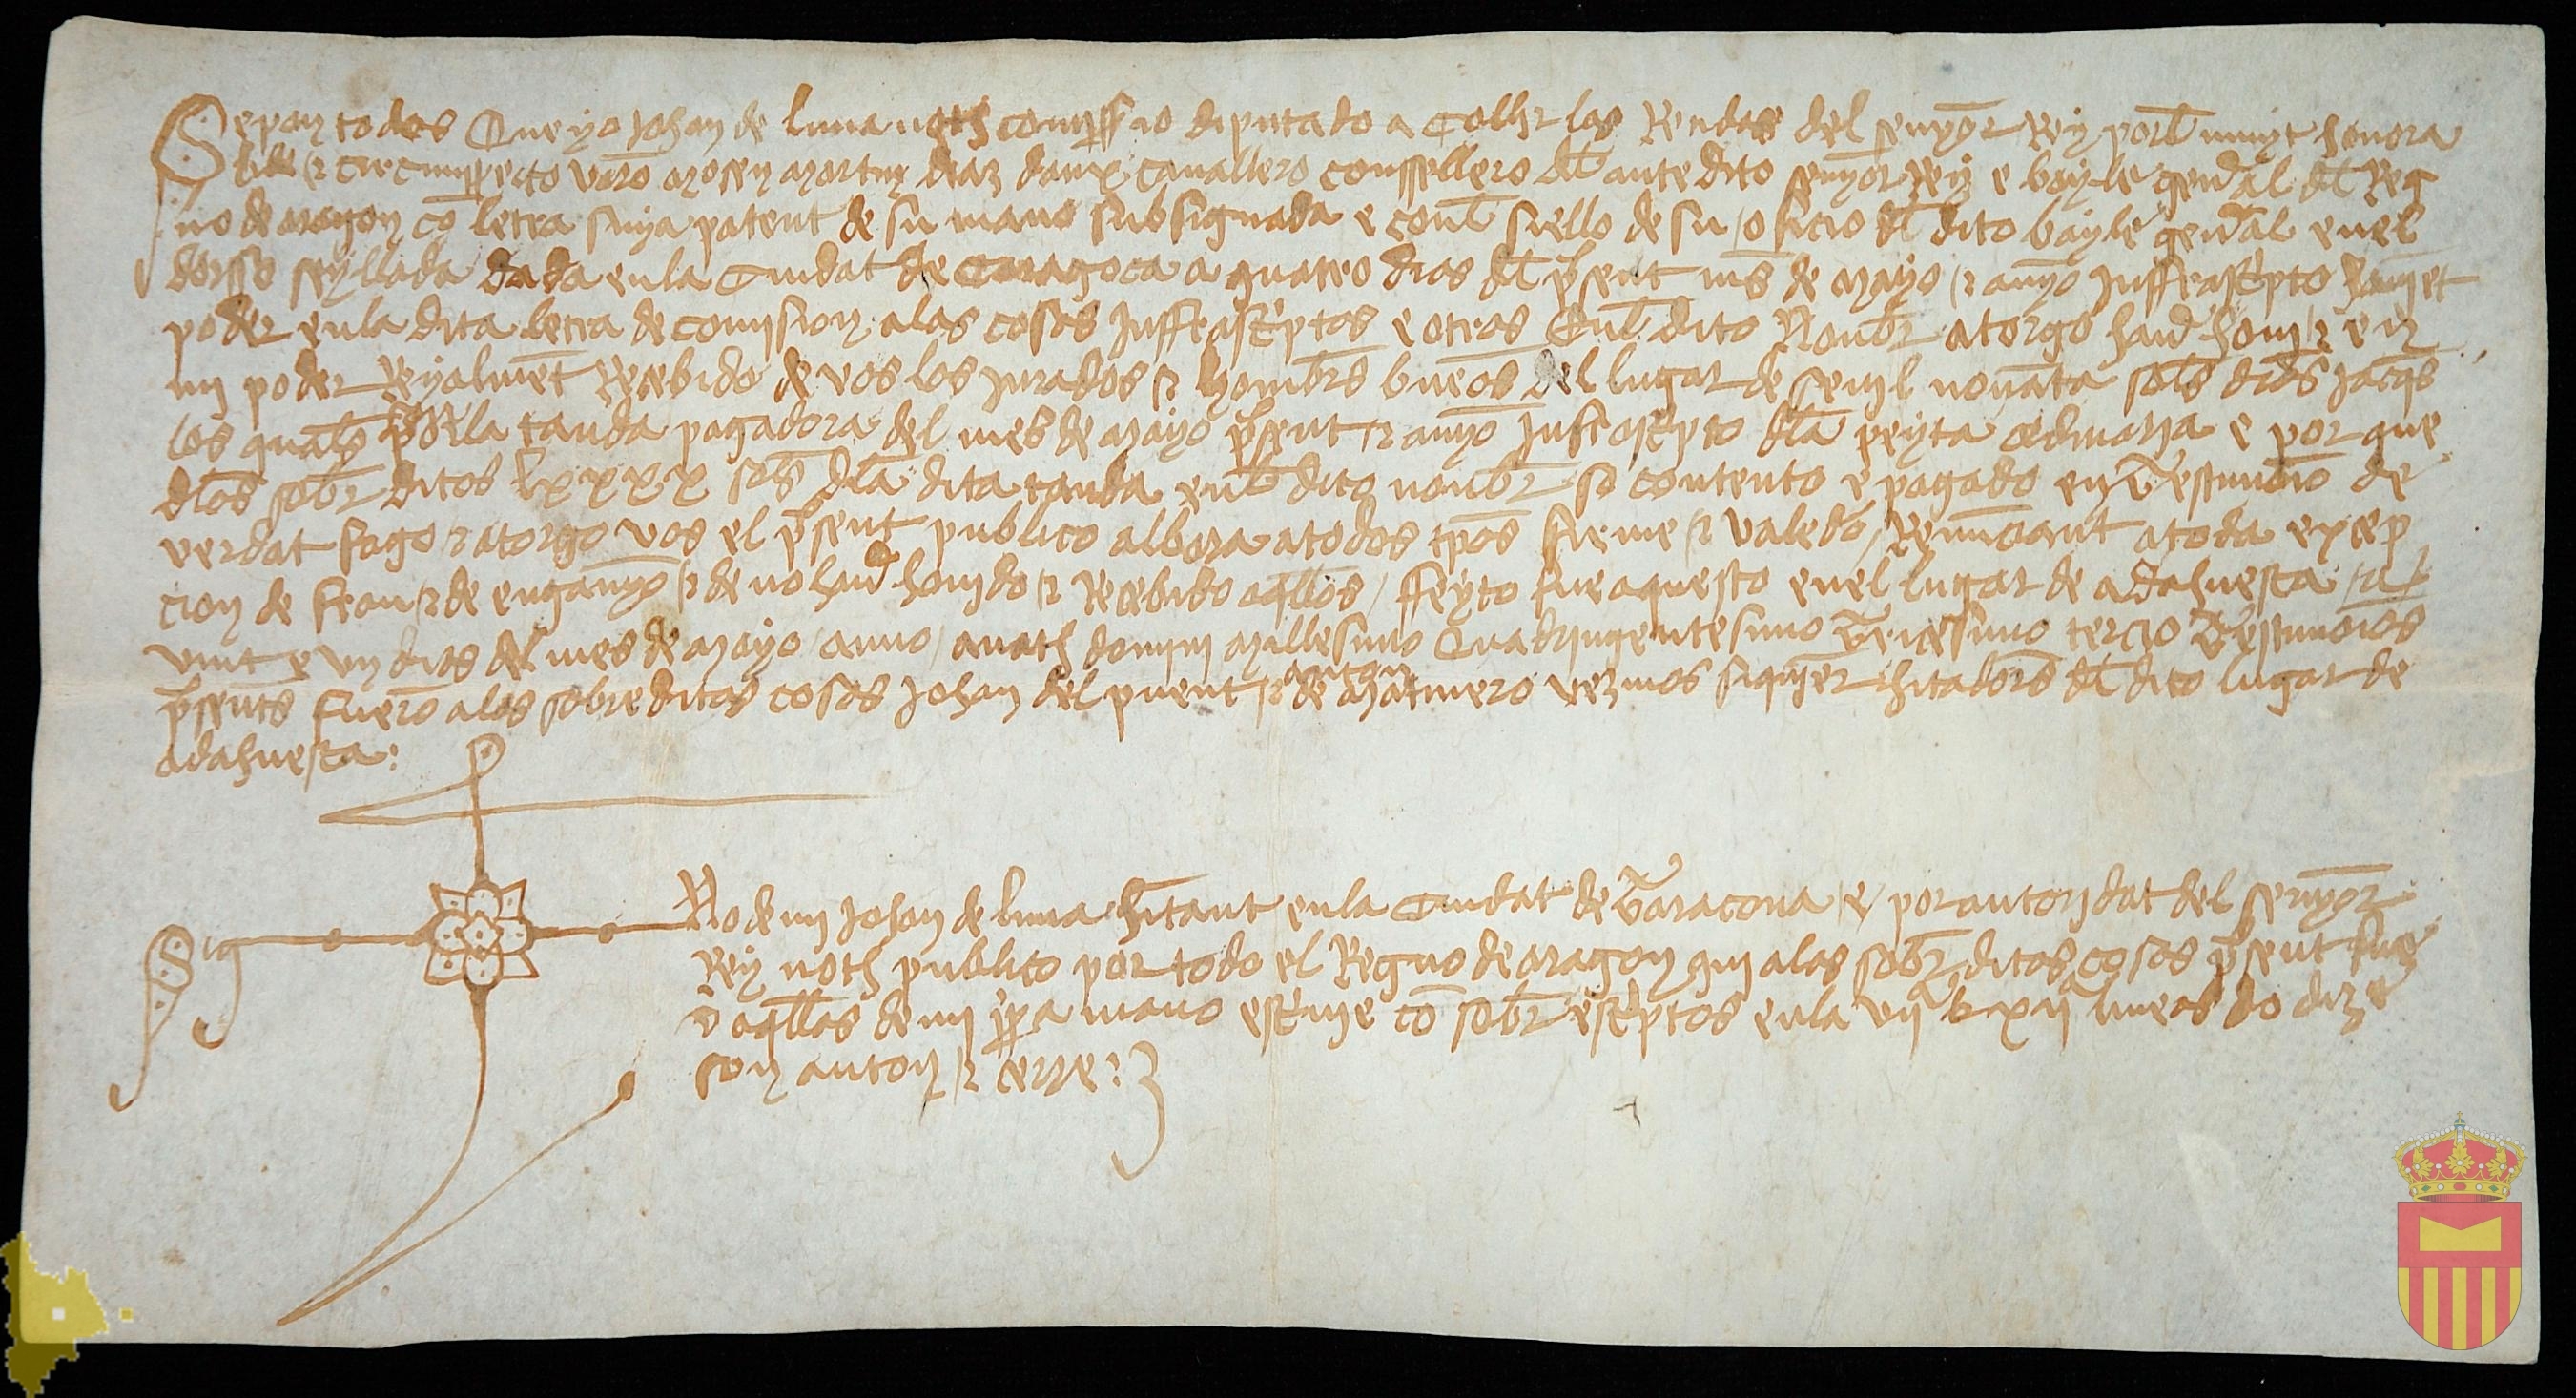 Sepan todos Que yo Johan de luna noth comissario diputado a Collir las Rendas del senyor Rey porel muyt honora
bile et circumspecto varo mosen martin diaz daux cavallero conssellero del ante dito senyor Rey e bayle general del Reg
no de aragon con letra suya patent de su mano subsignada e conel siello de su officio del dito bayle general enel
dorsso seyllada dada enla Ciudat de Caragoca a quatro dias del present mes de mayo et anyo Jnffrascripto havient
poder enla dita letra de comision alas cosas Jnffrascriptas e otras Enel dito Nonbre atorgo haver hovi et en
mi poder Reyalment Recebido de vos los jurados et hombres buenos del lugar de novanta solidos dineros jacqueses
los quales la tanda pagadora del mes de mayo present et anyo Jnfrascripto dela peyta ordinaria e por que
delos sobre ditos lxxxx solidos dela dita tanda enel dito nonbre so contento e pagado en Testimonio de
verdat fago et atorgo vos el present publico albara atodos tiempos firme et valedero Renunciant atoda excep
cion de frau et de enganyo et de no haver hovido et Recebido aquellos / ffeyto fue aquesto enel lugar de adahuesca a
vint e un dias del mes de mayo anno anath domini Millesimo Quadringentesimo Tricesimo tercio Testimonios
presents fueron alas sobre ditas cosas Johan del puent et anton de vezinos siquier habitadores del dito lugar de
adahuesca:
Sig No de mi Johan de luna habitant enla Ciudat de Taracona e por autoridat del senyor
Rey noth publico por todo el Regno de aragon qui alas sobre ditas cosas present fue
e aquellas de mi propria mano escrivie con sobrescriptos enla vii e xii lineas do dize
son anton et cerre: